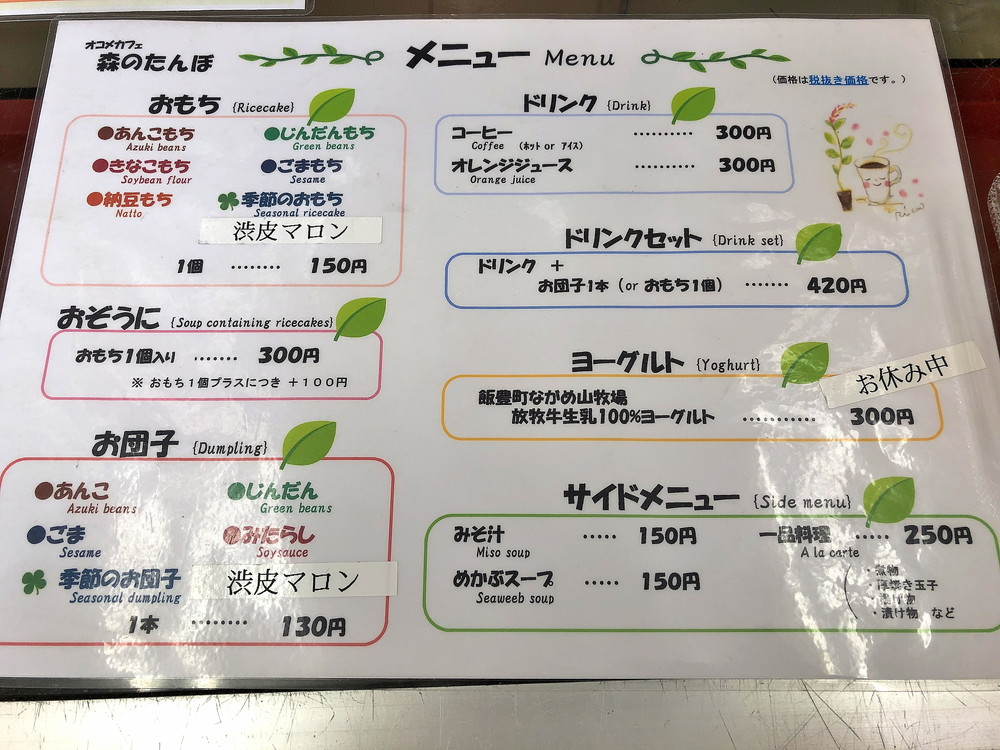 オコメカフェ
森のたんぼ
メニュー Menu
(価格は税抜き価格です。)
おもち {Ricecake}
●あんこもち ●じんだんもち
Azuki beans Green beans
●きなこもち ●ごまもち
Soybean flour Sesame
●納豆もち 季節のおもち
Natto Seasonal ricecake
渋皮マロン
1個 ‥‥‥‥ 150円
おぞうに {Soup containing ricecakes}
おもち1個入り ‥‥‥‥ 300円
※ おもち1個プラスにつき +100円
お団子 {Dumpling}
●あんこ ●じんだん
Azuki beans Green beans
●ごま ●みたらし
Sesame Soysauce
季節のお団子 渋皮マロン
Seasonal dumpling
1本 ‥‥‥‥ 130円
ドリンク {Drink}
コーヒー ‥‥‥‥‥ 300円
Coffee (ホット or アイス)
オレンジジュース ‥‥‥‥‥ 300円
Orange juice
ドリンクセット {Drink set}
ドリンク +
お団子1本 (or おもち1個) ‥‥‥‥ 420円
ヨーグルト {Yoghurt}
お休み中
飯豊町ながめ山牧場
放牧牛生乳100%ヨーグルト ‥‥‥‥‥‥ 300円
サイドメニュー {Side menu}
みそ汁 ‥‥‥ 150円
Miso soup
めかぶスープ ‥‥‥ 150円
Seaweeb soup
一品料理 ‥‥‥ 250円
A la carte
・煮物
・厚焼き玉子
・漬け物 など